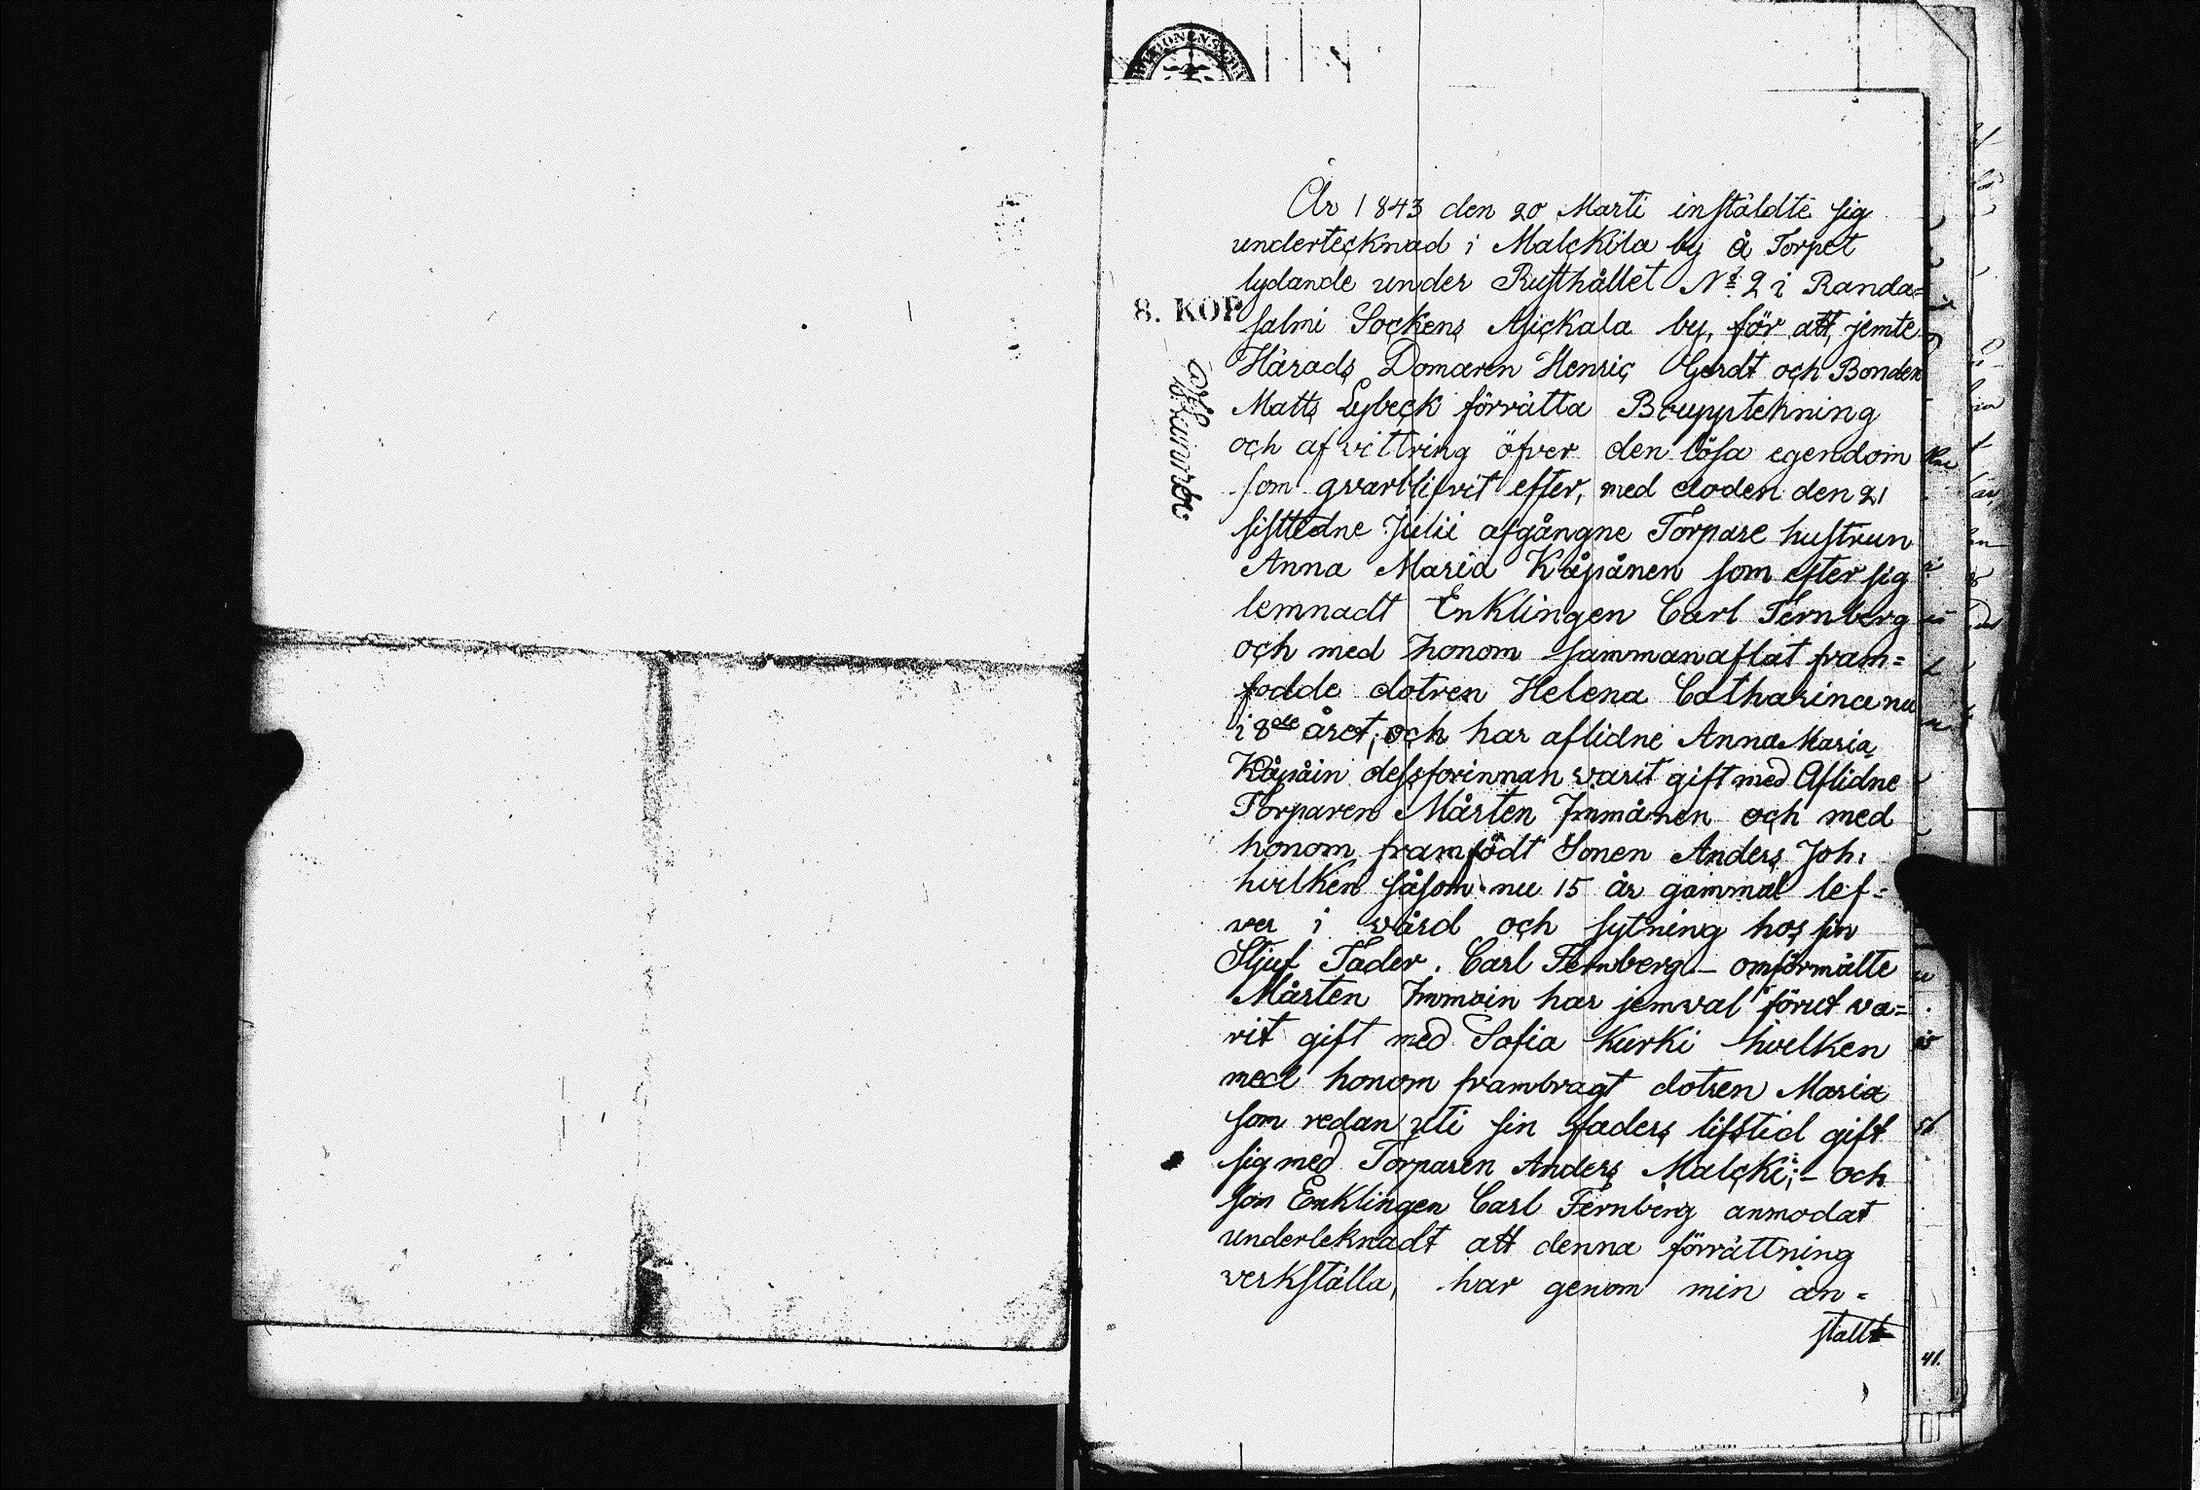 År 1843 den 20 Marti instäldte sig
undertecknad i Malckila by å Torpet
lydande under Rusthållet No 2 i Randa=
8. KOP.
salmi Sockens Asickala by, för att, jemte
Härads Domaren Henric Gerdt och Bonden
Matts Lybeck förrätta Boupptekning
och afvittring öfver den lösa egendom
som qvarblifvit efter, med döden den 21
sisttedne Julii afgångne Torpare hustrun
Anna Maria Käpänen som efter sig
lemnadt Enklingen Carl Fernberg
och med honom sammanaflat fram=
födde dotren Helena Catharina nu
i 8de året; och har aflidne Anna Maria
Käpäin dessforinnan varit gift med Aflidne
Torparen Mårten Immånen och med
honom framfödt Sonen Anders Joh:
hvilken såsom nu 15 år gammal lef=
ver i vård och sytning hos sin
Stjuf Fader. Carl Fernberg – omförmälte
Mårten Immoin har jemval förut va=
rit gift med Sofia Kurki hvilken
med honom frambragt dotren Maria
som redan uti sin faders lifstid gift
sig med Torparen Anders Malcki; – och
som Enklingen Carl Fernberg anmodat
underteknadt att denna förrättning
verkställa, har genom min an=
stallt
41.